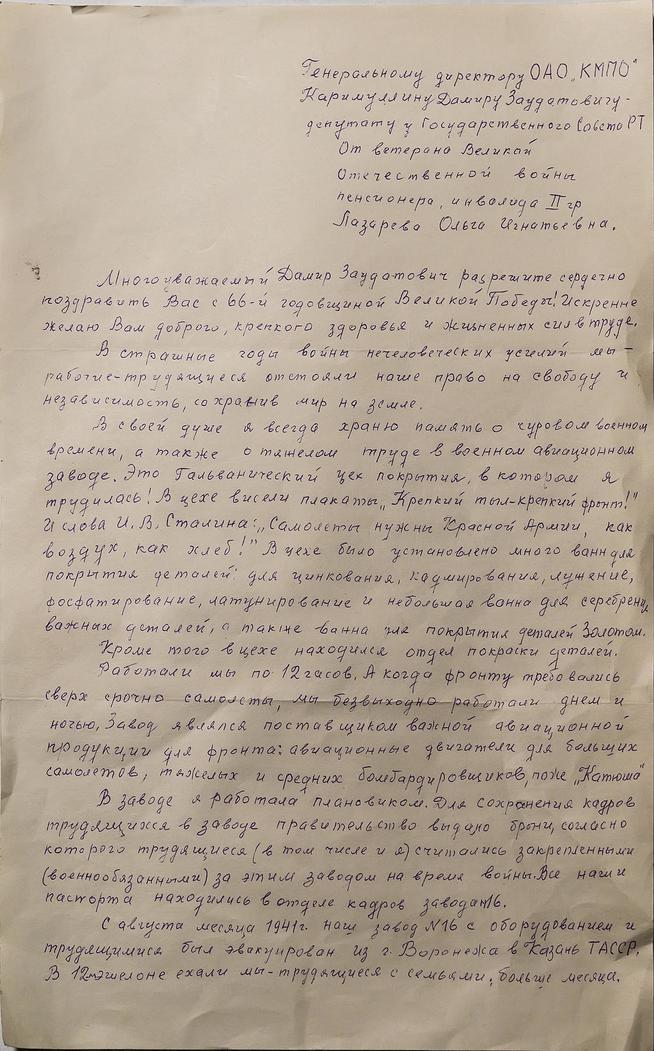 Генеральному директору ОАО „КМПО"
Каримуллину Дамиру Заудатовичу -
депутату у Государственного Совета РТ
От ветерана Великой
Отечественной войны
пенсионера, инвалида II гр
Лазарева Ольга Игнатьевна.
Многоуважаемый Дамир Заудатович разрешите сердечно
поздравить Вас с 66-й годовщиной Великой Победы! Искренне
желаю Вам доброго, крепкого здоровья и жизненных сил в труде.
В страшные годы войны нечеловеческих усилий мы -
рабочие-трудящиеся отстояли наше право на свободу и
независимость, сохранив мир на земле.
В своей душе я всегда храню память о суровом военном
времени, а также о тяжелом труде в военном авиационном
заводе. Это Гальванический цех покрытия, в котором я
трудилась! В цехе висели плакаты „Крепкий тыл-крепкий фронт!"
И слова И. В. Сталина: „Самолеты нужны Красной Армии, как
воздух, как хлеб!" В цехе было установлено много ванн для
покрытия деталей: для цинкования, кадмирования, лужение,
фосфатирование, латунирование и небольшая ванна для серебрения
важных деталей, а также ванна для покрытия деталей Золотом.
Кроме того в цехе находился отдел покраски деталей.
Работали мы по 12 часов. А когда фронту требовались
сверх срочно самолеты, мы безвыходно работали днем и
ночью. Завод являлся поставщиком важной авиационной
продукции для фронта: авиационные двигатели для больших
самолетов, тяжелых и средних бомбардировщиков, позже „Катюша"
В заводе я работала плановиком. Для сохранения кадров
трудящихся в заводе правительство выдано брони, согласно
которого трудящиеся (в том числе и я) считались закрепленными
(военнообязанными) за этим заводом на время войны. Все наши
паспорта находились в отделе кадров завода №16.
С августа месяца 1941г. наш завод №16 с оборудованием и
трудящимися был эвакуирован из г. Воронежа в Казань ТАССР.
В 12-эшелоне ехали мы-трудящиеся с семьями, больше месяца.